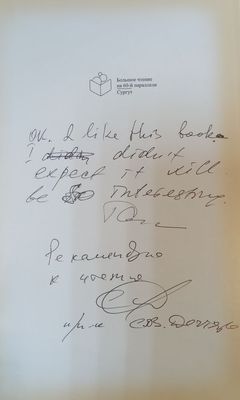 Большое чтение
на 60-й параллели
Сургут
OK. I like this book
I didn't
expect it will
be interesting.
Рекомендую
к чтению